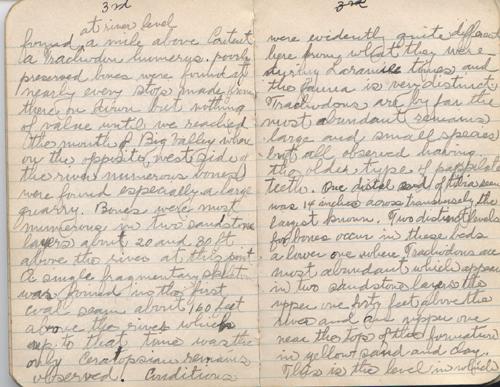 3rd
at river level
found a mile above Contact
a Trachodon humerus. poorly
preserved bones were found at
nearly every stop made from
there on down but nothing
of value until we reached
the mouth of Big Valley where
on the opposite, west side of
the river numerous bones
were found especially a large
quarry. Bones were most
numerous in two sandstone
layers about 20 and 30 ft
above the river at this point
A single fragmentary
was found in the first
coal seam about 160 feet
above the river which
up to that time was the
only Ceratopsian remains
observed. Conditions
3rd
were evidently quite different
here from what they were
during Laramie times and
the fauna is very distinct.
Trachodons are by far the
most abundant remains
large and small species
but all observed having
the older type of papillate
teeth. One distal end of tibia seen
was 14 inches across transversely the
largest known. Two distinct levels
for bones occur in these beds
a lower one where Trachodons are
most abundant which appear
in two sandstone layers the
upper one forty feet above the
river and an upper one
near the top of the formation
in yellow sand and clay.
This is the level in which